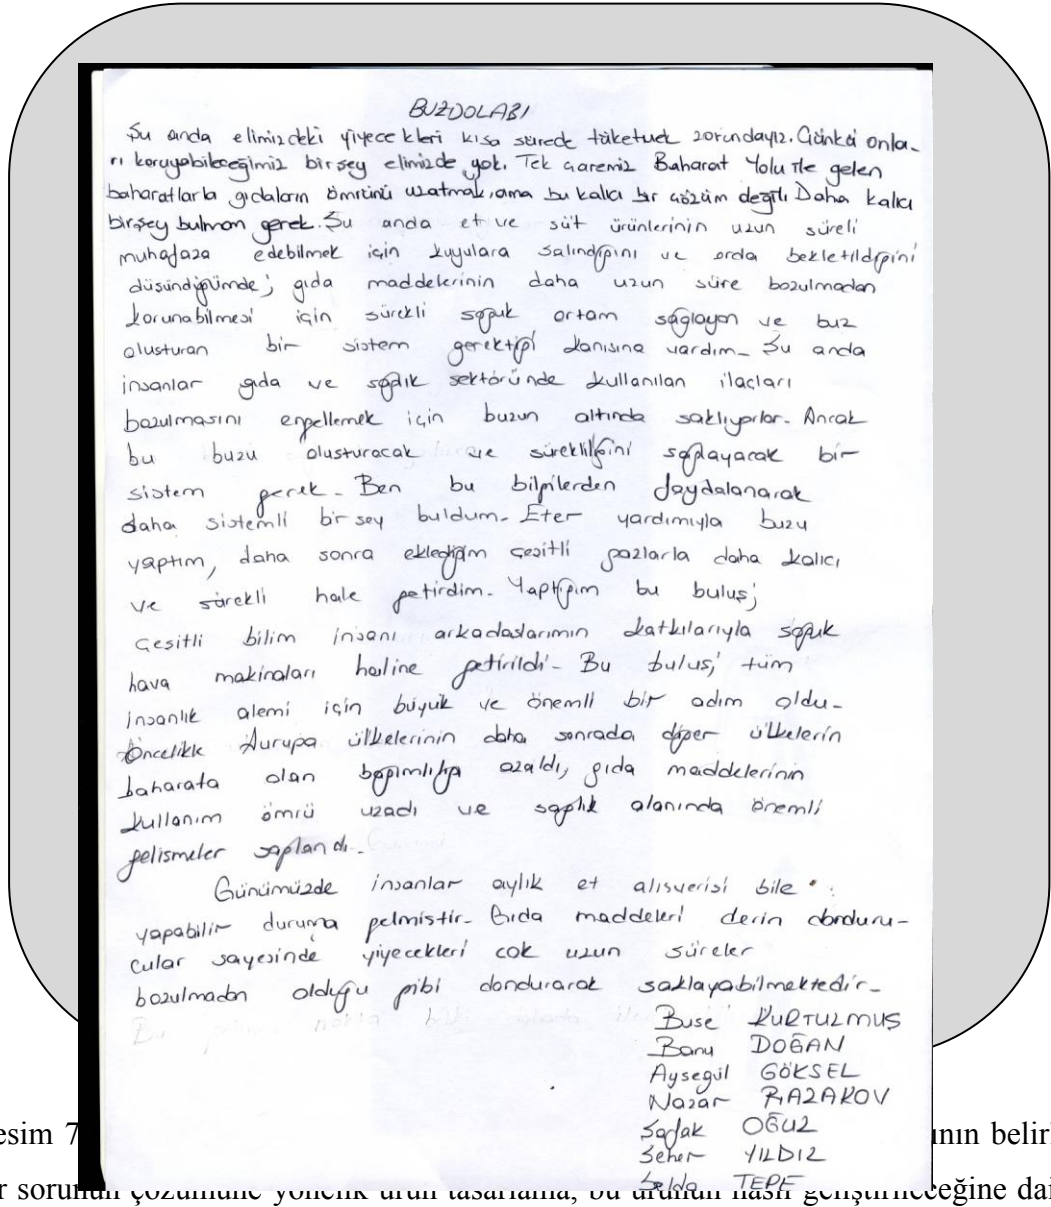 BUZDOLABI
Şu anda elimizdeki yiyecekleri kısa sürede tüketmek zorundayız. Çünkü onla-
rı koruyabileceğimiz birşey elimizde yok. Tek çaremiz Baharat Yolu ile gelen
baharatlarla gıdaların ömrünü uzatmak, ama bu kalıcı bir çözüm değil. Daha kalıcı
birşey bulmam gerek. Şu anda et ve süt ürünlerinin uzun süreli
muhafaza edebilmek için kuyulara salındığını ve orda bekletildiğini
düşündüğümde; gıda maddelerinin daha uzun süre bozulmadan
korunabilmesi için sürekli soğuk ortam sağlayan ve buz
oluşturan bir sistem gerektiği kanısına vardım. Şu anda
insanlar gıda ve sağlık sektöründe kullanılan ilaçları
bozulmasını engellemek için buzun altında saklıyorlar. Ancak
bu buzu oluşturacak ve sürekliliğini sağlayacak bir
sistem gerek. Ben bu bilgilerden faydalanarak
daha sistemli bir şey buldum. Eter yardımıyla buzu
yaptım, daha sonra eklediğim çeşitli gazlarla daha kalıcı
ve sürekli hale getirdim. Yaptığım bu buluş;
çeşitli bilim insanı arkadaşlarımın katkılarıyla soğuk
hava makinaları haline getirildi. Bu buluş; tüm
insanlık alemi için büyük ve önemli bir adım oldu.
Öncelikle Avrupa ülkelerinin daha sonrada diğer ülkelerin
baharata olan bağımlılığı azaldı, gıda maddelerinin
kullanım ömrü uzadı ve sağlık alanında önemli
gelişmeler sağlandı.
Günümüzde insanlar aylık et alışverişi bile
yapabilir duruma gelmiştir. Gıda maddeleri derin donduru-
cular sayesinde yiyecekleri çok uzun süreler
bozulmadan olduğu gibi dondurarak saklayabilmektedir.
Buse KURTULMUŞ
Banu DOĞAN
Ayşegül GÖKSEL
Nazar RAZAKOV
Şafak OĞUZ
Seher YILDIZ
Selda TEPE
esim 7 nın belirl
r sorunun çözümüne yönelik ürün tasarlama, bu ürünün nasıl geliştirileceğine dai